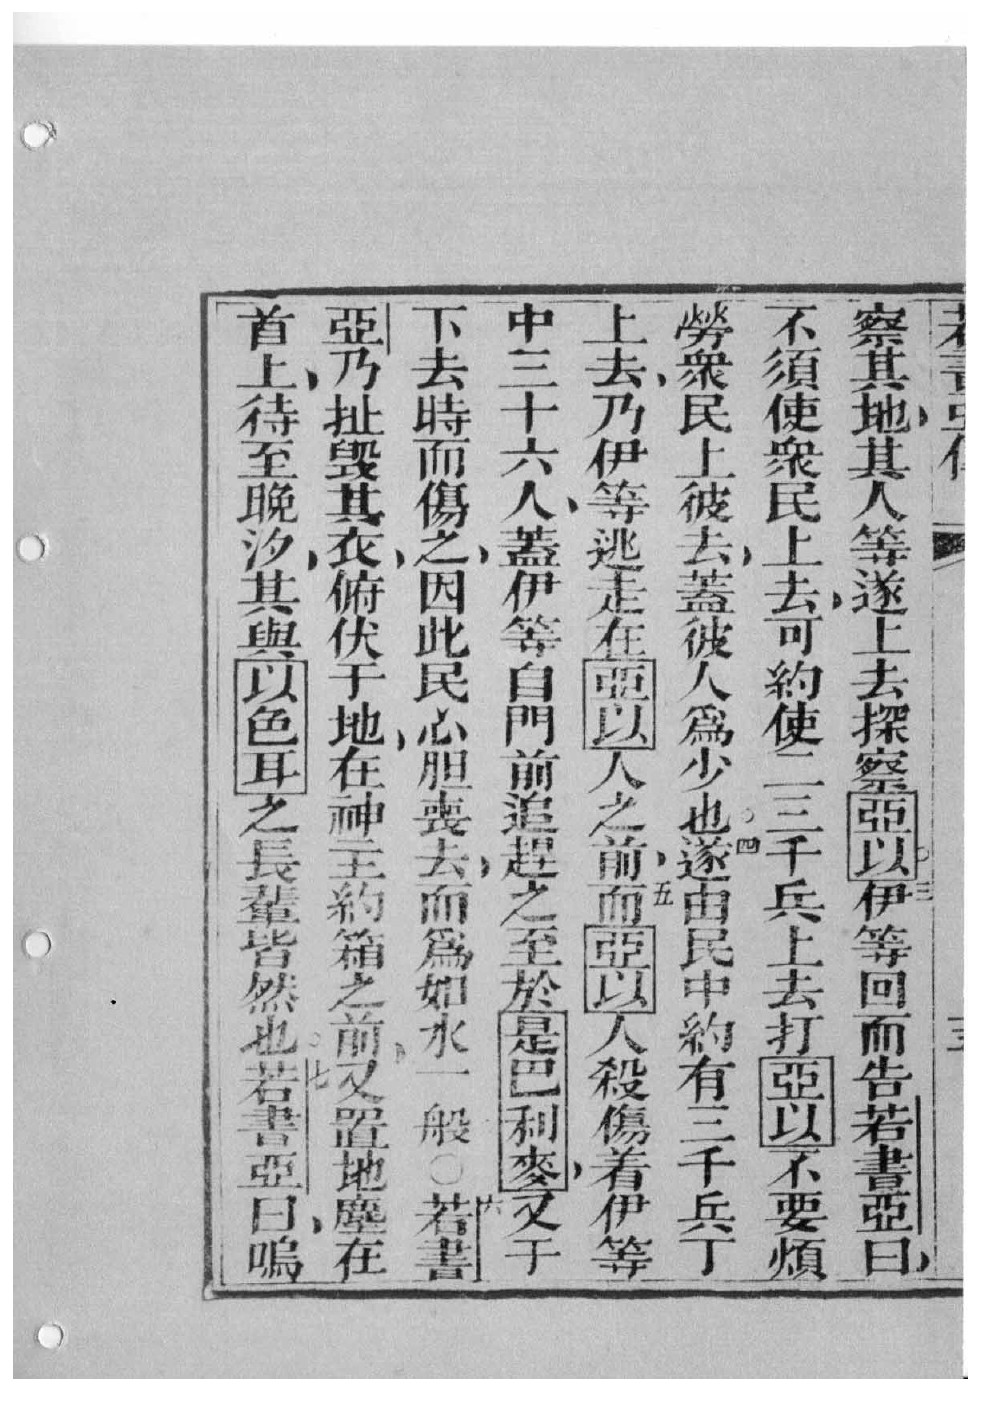 若書亞傳
察其地其人等遂上去探察亞以三伊等回而告若書亞曰
不須使衆民上去可約使二三千兵上去打亞以不要煩
勞衆民上彼去蓋彼人爲少也四遂由民中約有三千兵丁
上去乃伊等逃走在亞以人之前五而亞以人殺傷着伊等
中三十六人蓋伊等自門前追趕之至於是巴利麥又于
下去時而傷之因此民心胆喪去而爲如水一般○六若書
亞乃扯毁其衣俯伏于地在神主約箱之前又置地塵在
首上待至晚汐其與以色耳之長輩皆然也七若書亞曰嗚